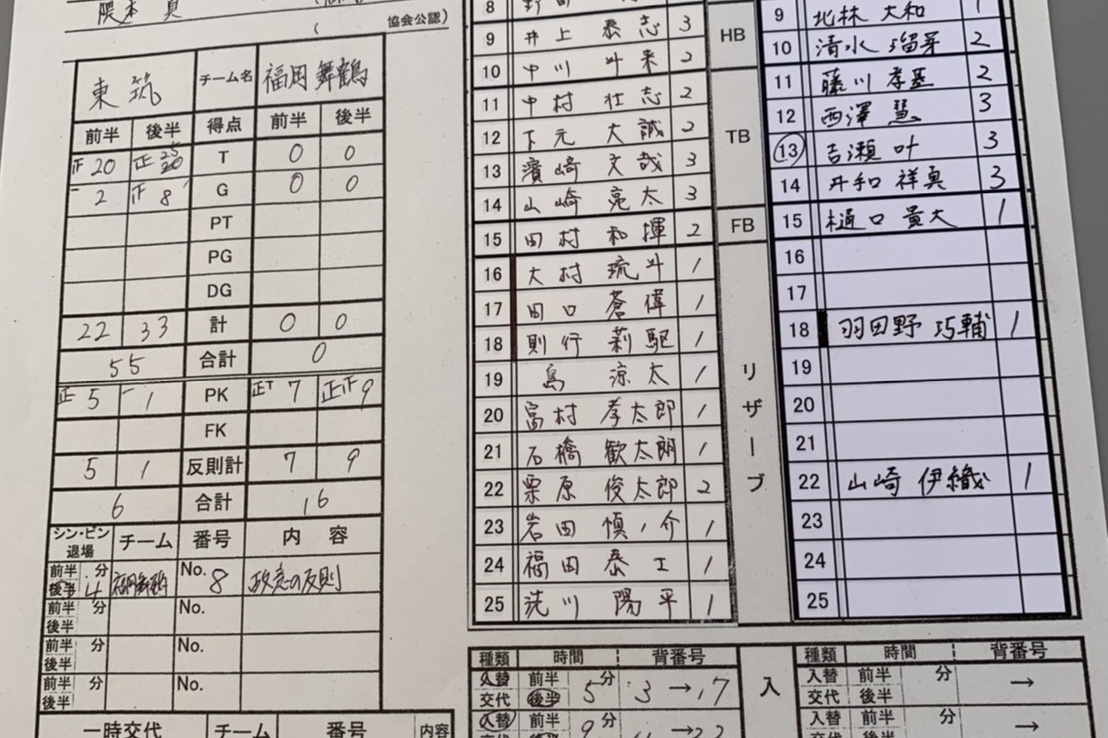 協会公認)
東筑 チーム名 福岡舞鶴
前半 後半 得点 前半 後半
正 20 正 25 T 0 0
2 正 8 G 0 0
PT
PG
DG
22 33 計 0 0
55 合計 0
正 5 一 1 PK 正T 7 正正 9
FK
5 1 反則計 7 9
6 合計 16
シン・ビン 退場 チーム 番号 内容
前半 後半 分 4 福岡舞鶴 No. 8 故意の反則
前半 後半 分 No.
前半 後半 分 No.
前半 後半 分 No.
一時交代 チーム 番号 内容
8
9 井上 泰志 3
10 中川 斗来 2
11 中村 壮志 2
12 下元 大誠 2
13 濱崎 文哉 3
14 山崎 亮太 3
15 田村 和揮 2
16 大村 琉斗 1
17 田口 蒼偉 1
18 則行 莉駆 1
19 島 涼太 1
20 冨村 孝太郎 1
21 石橋 歓太朗 1
22 栗原 俊太郎 2
23 岩田 慎ノ介 1
24 福田 泰士 1
25 洗川 陽平 1
HB
TB
FB
リザーブ
9 北林 大和 1
10 清水 瑠芽 2
11 藤川 2
12 西澤 慧 3
13 吉瀬 叶 3
14 井和 祥真 3
15 樋口 貴大 1
16
17
18 羽田野 巧輔 1
19
20
21
22 山崎 伊織 1
23
24
25
種類 時間 背番号
入替 交代 前半 後半 5分 3 → 17
入替 交代 前半 後半 9分 → 22
入
種類 時間 背番号
入替 交代 前半 後半 分 →
入替 交代 前半 後半 分 →